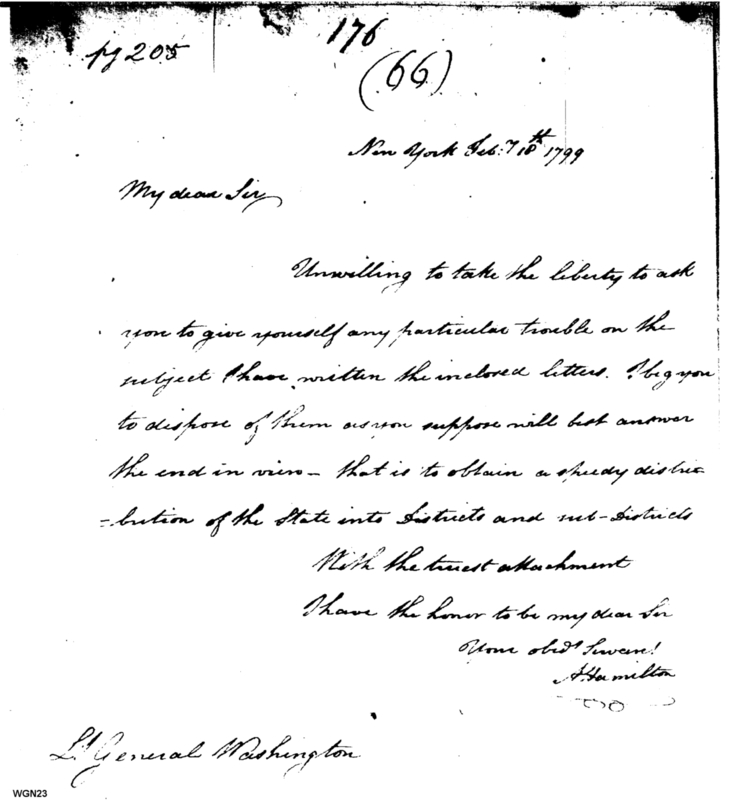 pg 205
176
(66)
New York Feb:y 18th 1799
My dear Sir
Unwilling to take the liberty to ask
you to give yourself any particular trouble on the
subject I have written the inclosed letters. I beg you
to dispose of them as you suppose will best answer
the end in view – that is to obtain a speedy distri
=bution of the State into Districts and sub-Districts
With the truest attachment
I have the honor to be my dear Sir
Your obedt Servant
A Hamilton
Lt General Washington
WGN23